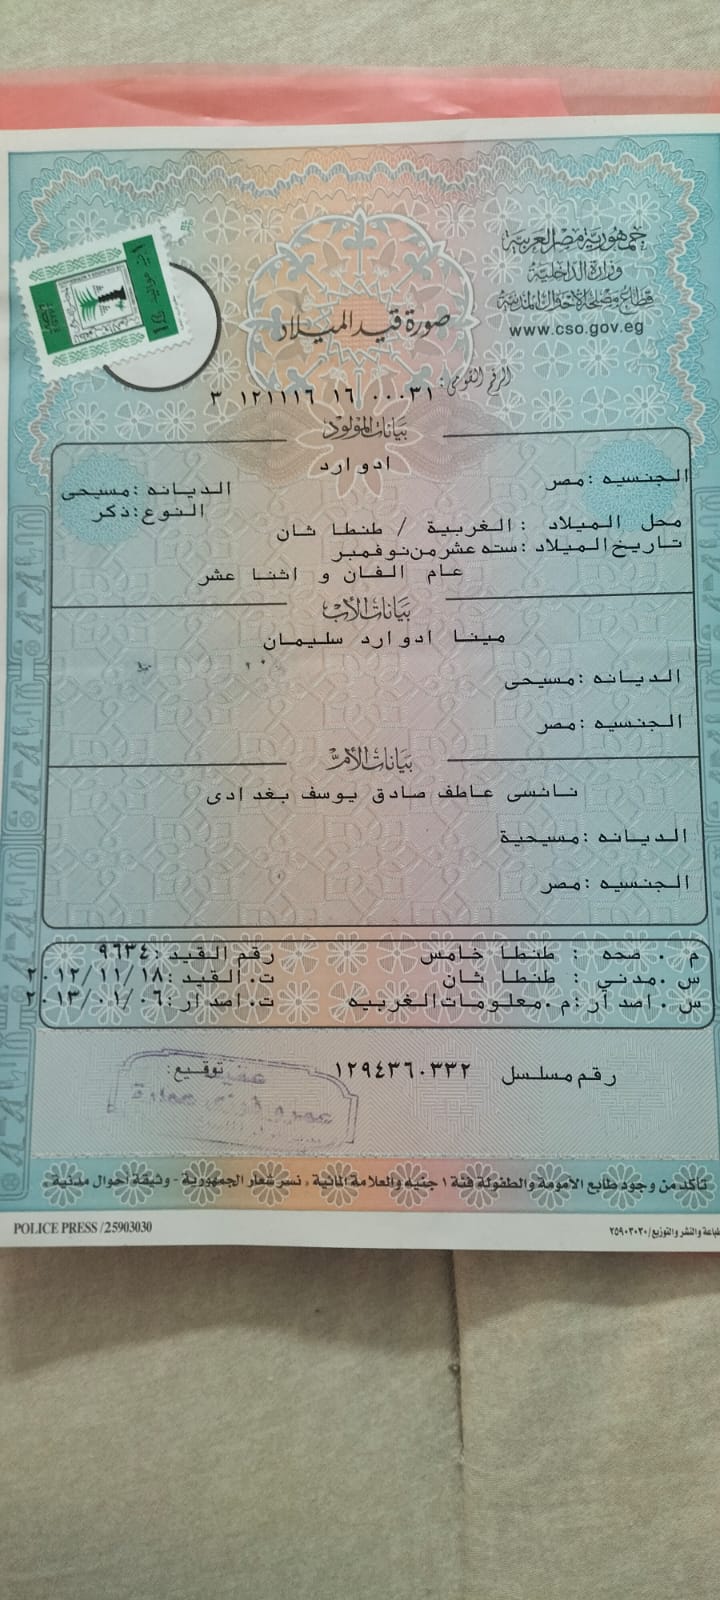 جمهورية مصر العربية
وزارة الداخلية
قطاع مصلحة الأحوال المدنية
www.cso.gov.eg
صورة قيد الميلاد
الرقم القومى: ٣ ١٢١١١٦ ١٦ ٠٠٠٣١
بيانات المولود
ادوارد
الجنسيه :مصر
الديانه :مسيحى
النوع:ذكر
محل الميلاد :الغربية / طنطا ثان
تاريخ الميلاد :سته عشر من نوفمبر
عام الفان و اثنا عشر
بيانات الأب
مينا ادوارد سليمان
الديانه :مسيحى
الجنسيه :مصر
بيانات الأم
نانسى عاطف صادق يوسف بغدادى
الديانه :مسيحية
الجنسيه :مصر
م . صحه : طنطا خامس رقم القيد :٩٦٣٤
س .مدني : طنطا ثان ت. القيد :٢٠١٢/١١/١٨
س . اصدار :م .معلومات الغربيه ت. اصدار :٢٠١٣/٠١/٠٦
رقم مسلسل ١٢٩٤٣٦٠٣٣٢ توقيع:
تأكد من وجود طابع الأمومة والطفولة فئة ١ جنيه والعلامة المائية ، نسر شعار الجمهورية - وثيقة أحوال مدنية
POLICE PRESS /25903030
طباعة والنشر والتوزيع/٢٥٩٠٣٠٣٠